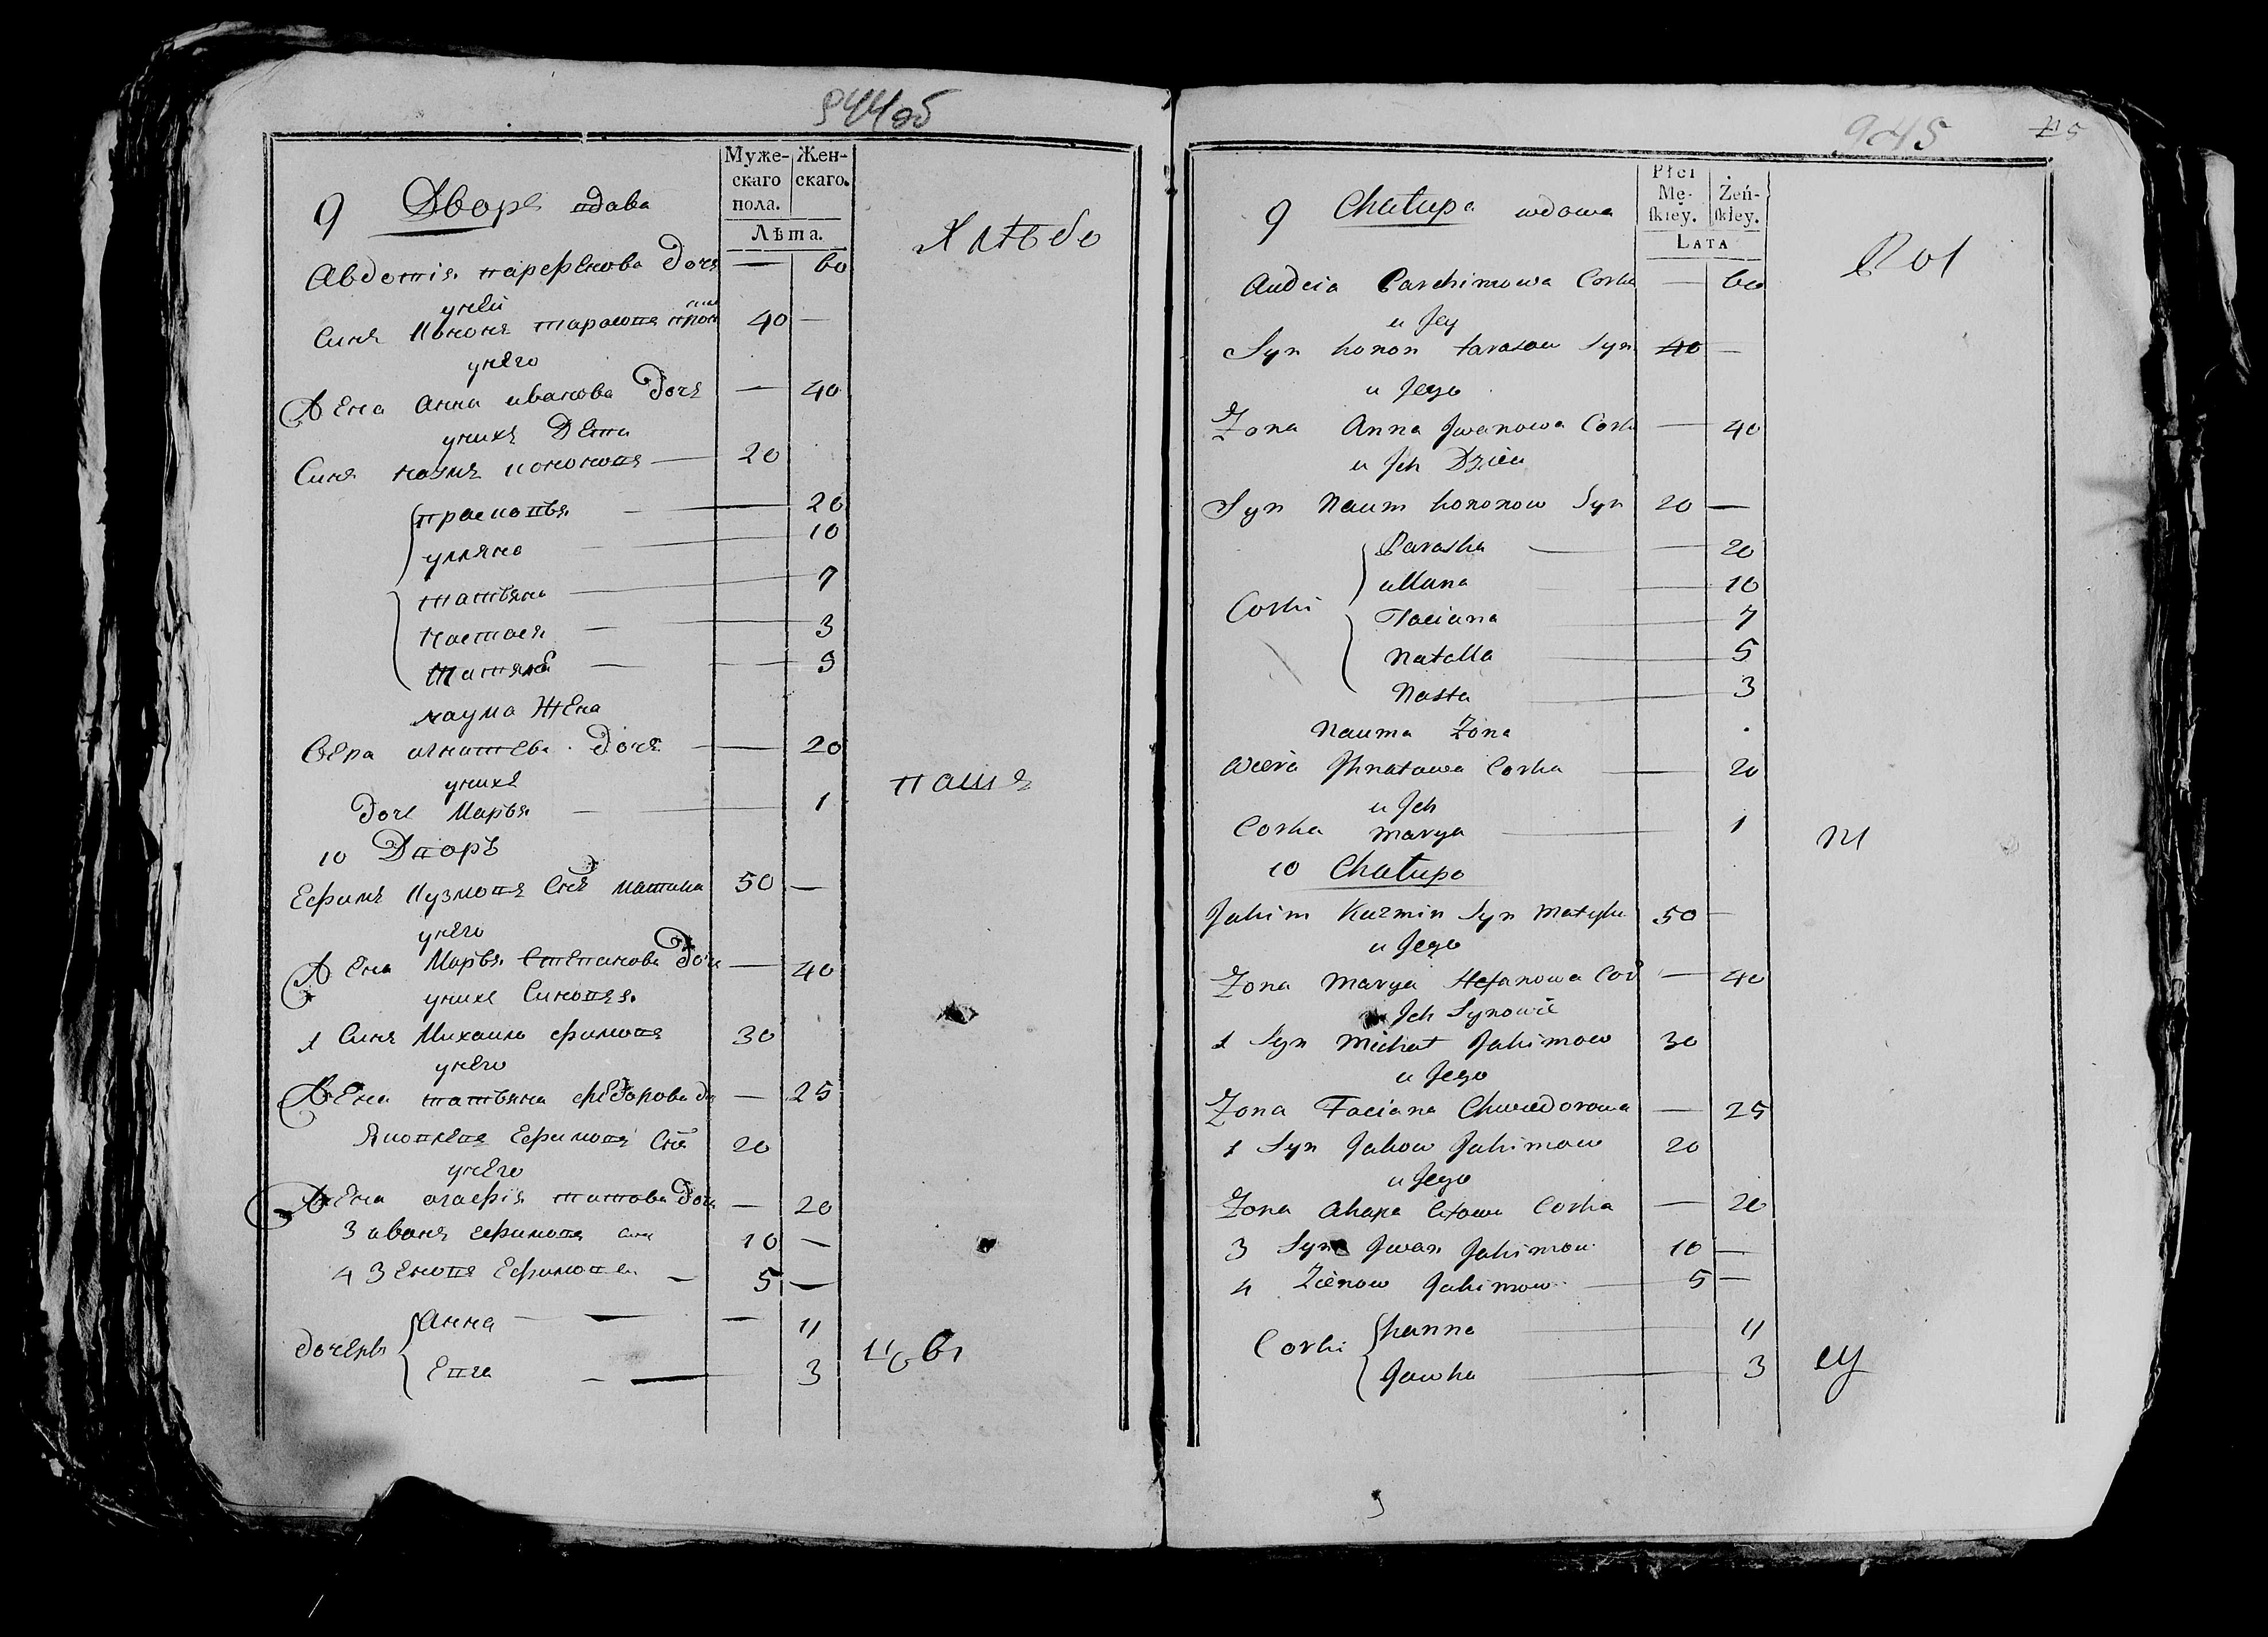 944об
Муже-
скаго
пола.
Жен-
скаго.
Лѣта.
9 Дворъ вдава
Хлѣбо
Авдотія парфѣнова дочъ — 60
унеи
Синъ Кононъ тарасовъ 40 —
унего
Жена Анна иванова дочъ — 40
унихъ Дети
Синъ наумъ кононовъ — 20
прасковья — 20
улляна — 10
татьяна — 7
настася — 3
наума жена
Вера игнатева дочъ — 20
унихъ
дочъ Марья — 1
пашъ
10 Дворъ
Ефимъ Кузмовъ снъ матика 50 —
унего
Жена Марья степанова доч — 40
унихъ Синовъя
1 Синъ Михаило ефимовъ 30
унего
Жена татьяна федорова до — 25
Яковъ Ефимовъ снъ 20
унего
Жена агафія титова доч — 20
3 иванъ ефимовъ 10 —
4 Зеновъ Ефимовъ — 5 —
дочерѣ Анна — 11
Евга — 3
945
5
Płci
Mę-
ſkiey.
Żeń-
ſkiey.
LATA
9 Chałupa wdowa
Rol
Audcia Parchimowa Corka — 60
u Jey
Syn konon tarasow Syn 40 —
u Jego
Zona Anna Jwanowa Cork — 40
u Jch Dzieci
Syn Naum kononow Syn 20 —
Corki Paraska — 20
ullana — 10
Taciana — 7
Natalla — 5
Nasta — 3
Nauma Zona
Wiera Jhnatowa Corka — 20
u Jch
Corka Marya — 1
ni
10 Chałupa
Jakim Kuzmin Syn Matyka 50 —
u Jego
Zona Marya Stefanowa Cor — 40
Jch Synowie
1 Syn Michał Jakimow 30
u Jego
Zona Taciana Chwiedorowa — 25
1 Syn Jakow Jakimow 20
u Jego
Zona Ahapa Citowa Corka — 20
3 Syn Jwan Jakimow 10 —
4 Zienow Jakimow — 5 —
Corki hanna — 11
Jawka — 3
cy